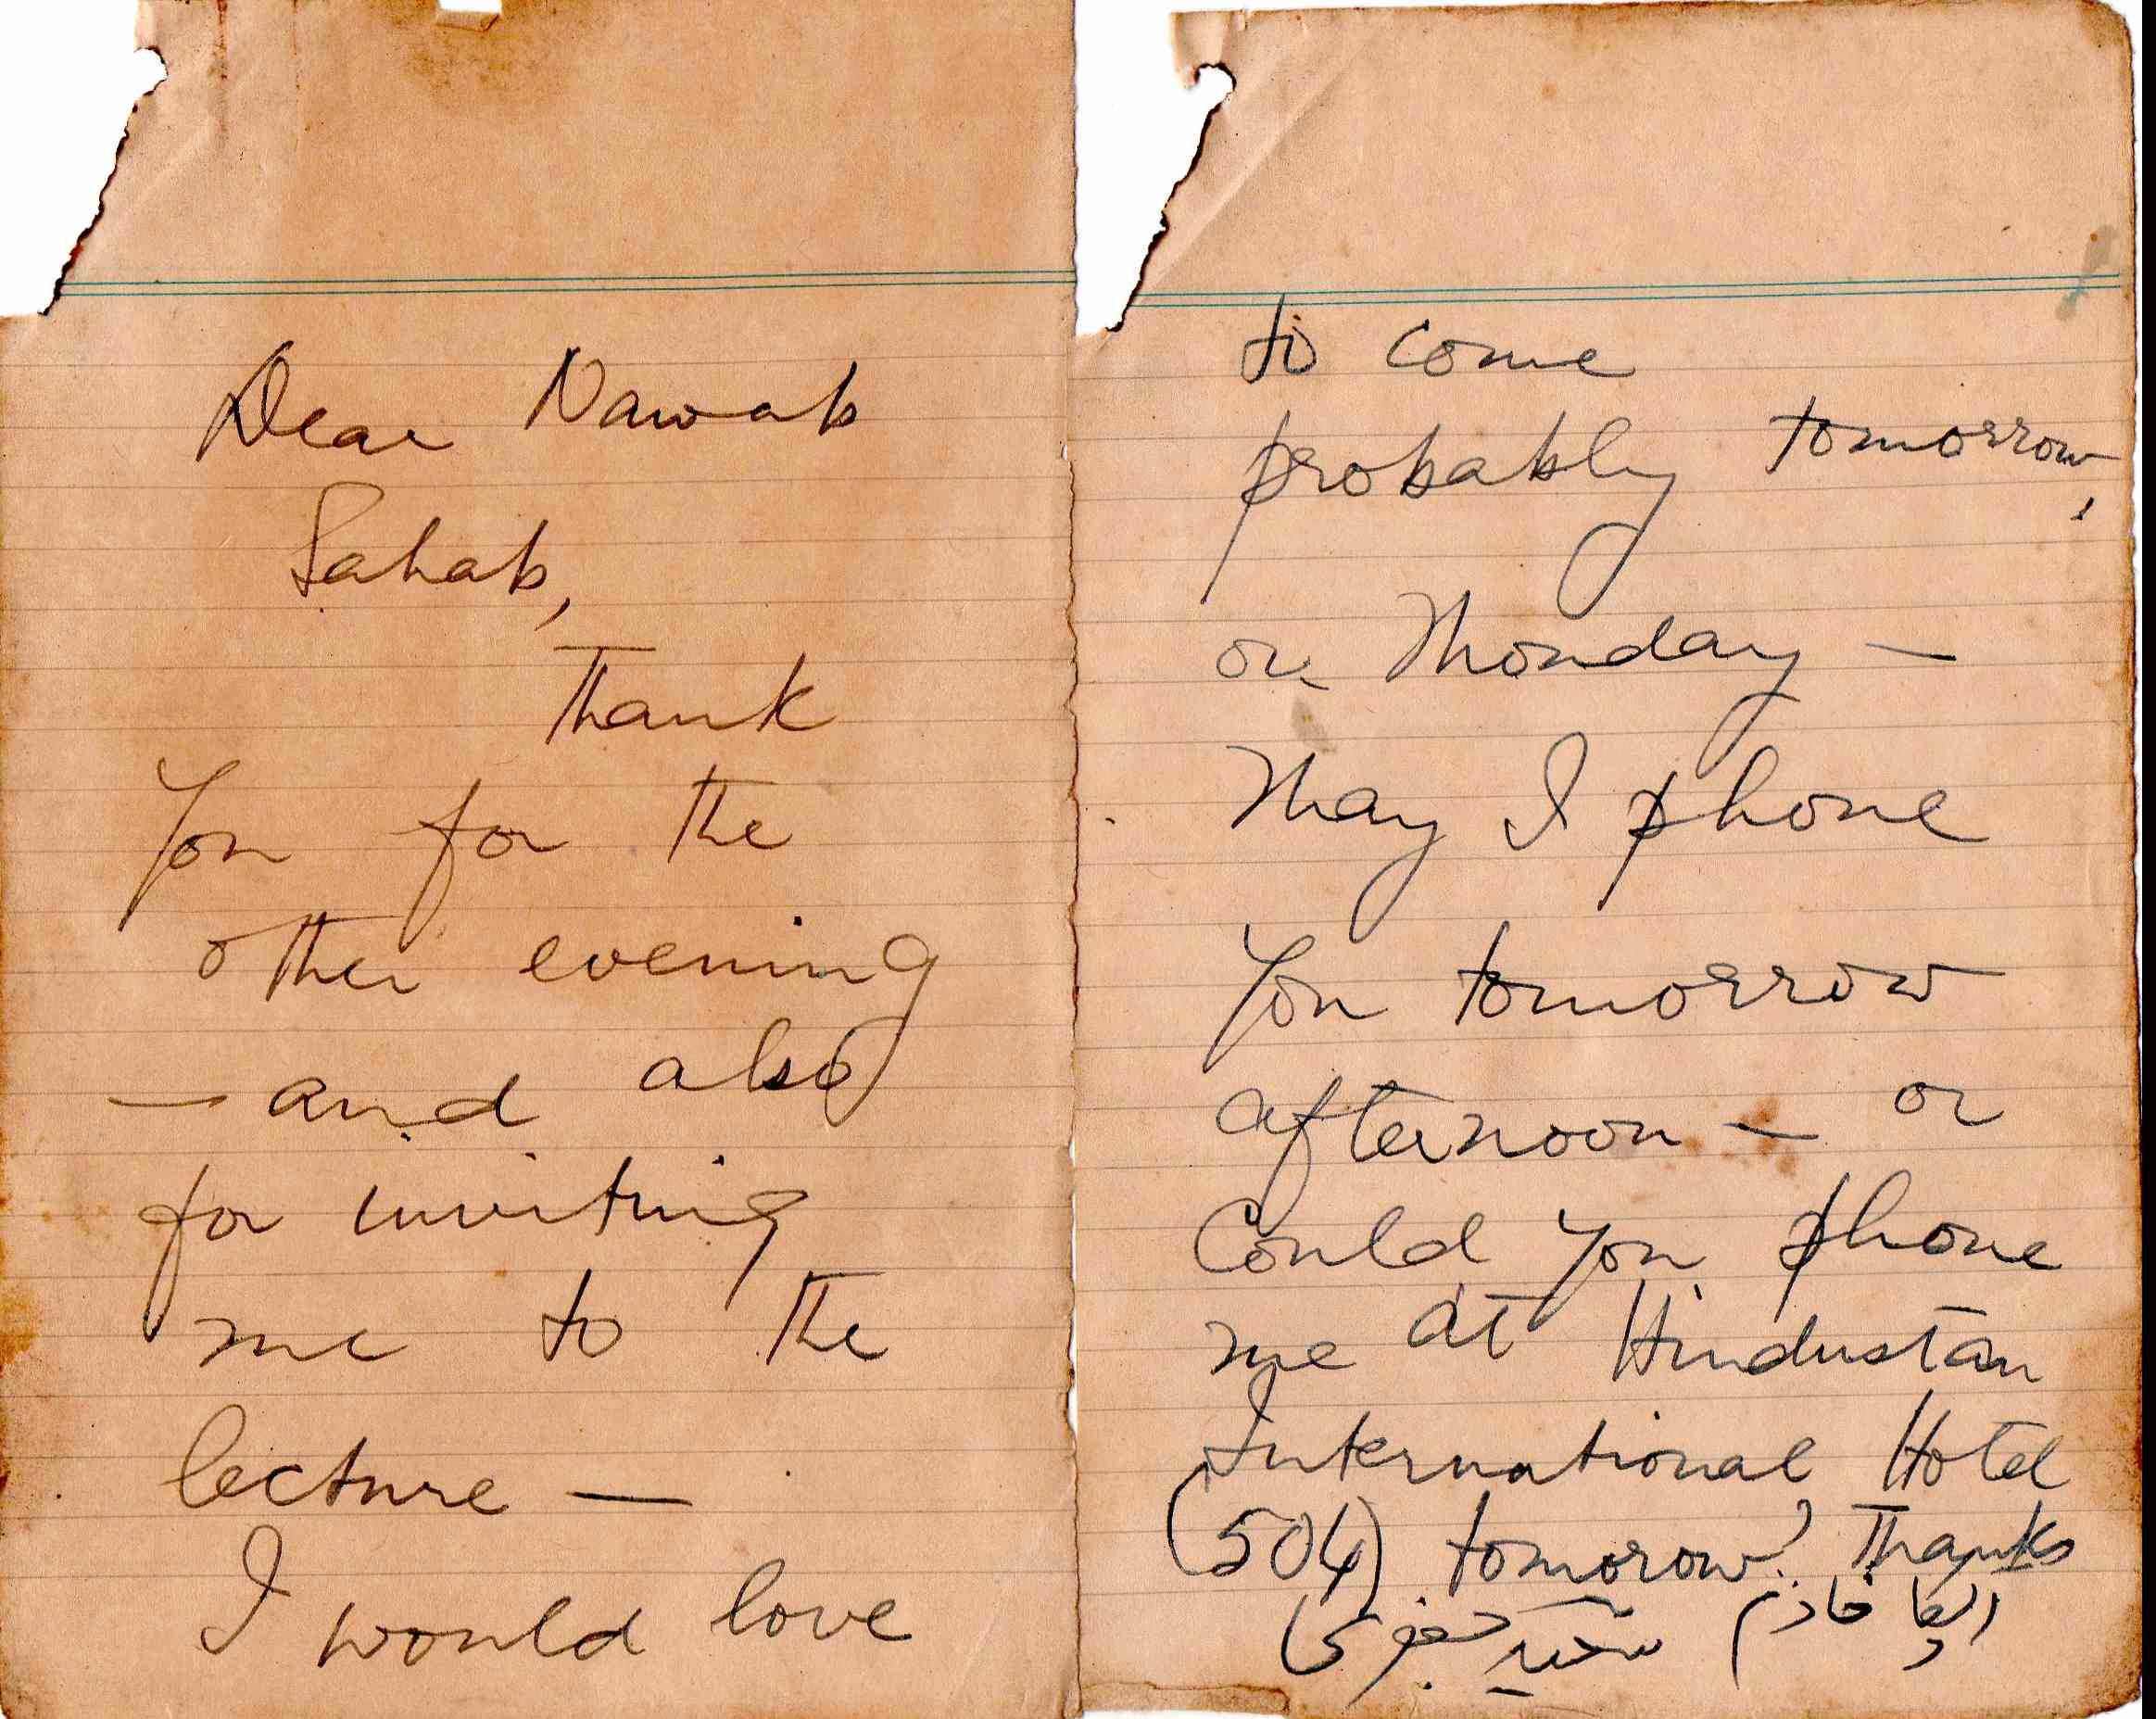 Dear Nawab
Sahab,
Thank
You for the
other evening
— and also
for inviting
me to the
lecture —
I would love
to come
probably tomorrow,
or Monday —
May I phone
You tomorrow
afternoon — or
Could you phone
me at Hindustan
International Hotel
(504) tomorow? Thanks
خادم
سعید جعفری